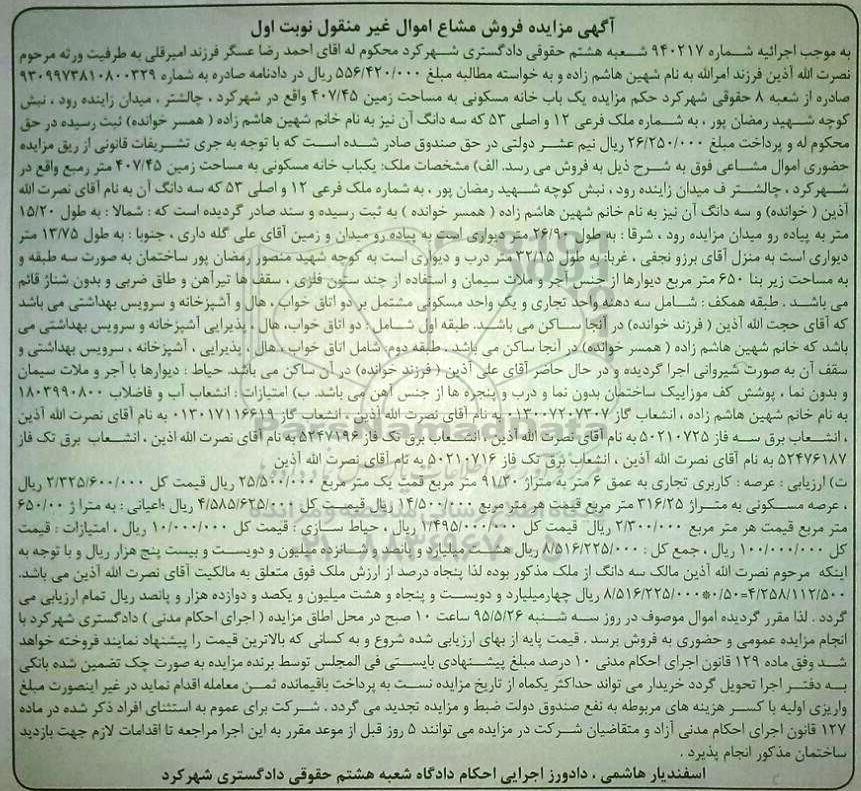 آگهی مزایده فروش مشاع اموال غیر منقول نوبت اول
به موجب اجرائیه شماره ۹۴۰۲۱۷ شعبه هشتم حقوقی دادگستری شهرکرد محکوم له اقای احمد رضا عسگر فرزند امیرقلی به طرفیت ورثه مرحوم
نصرت الله آذین فرزند امرالله به نام شهین هاشم زاده و به خواسته مطالبه مبلغ ۵۵۶/۴۲۰/۰۰۰ ریال در دادنامه صادره به شماره ۹۳۰۹۹۷۳۸۱۰۸۰۰۳۲۹
صادره از شعبه ۸ حقوقی شهرکرد حکم مزایده یک باب خانه مسکونی به مساحت زمین ۴۰۷/۴۵ واقع در شهرکرد ، چالشتر ، میدان زاینده رود ، نبش
کوچه شهید رمضان پور ، به شماره ملک فرعی ۱۲ و اصلی ۵۳ که سه دانگ آن نیز به نام خانم شهین هاشم زاده ( همسر خوانده) ثبت رسیده در حق
محکوم له و پرداخت مبلغ ۲۶/۲۵۰/۰۰۰ ریال نیم عشر دولتی در حق صندوق صادر شده است که با توجه به جری تشریفات قانونی از ریق مزایده
حضوری اموال مشاعی فوق به شرح ذیل به فروش می رسد. الف) مشخصات ملک: یکباب خانه مسکونی به مساحت زمین ۴۰۷/۴۵ متر رمبع واقع در
شهرکرد ، چالشتر ف میدان زاینده رود ، نبش کوچه شهید رمضان پور ، به شماره ملک فرعی ۱۲ و اصلی ۵۳ که سه دانگ آن به نام آقای نصرت الله
آذین ( خوانده) و سه دانگ آن نیز به نام خانم شهین هاشم زاده ( همسر خوانده ) به ثبت رسیده و سند صادر گردیده است که : شمالا : به طول ۱۵/۲۰
متر به پیاده رو میدان مزایده رود ، شرقا : به طول ۲۶/۹۰ متر دیواری است به پیاده رو میدان و زمین آقای علی گله داری ، جنوبا : به طول ۱۳/۷۵ متر
دیواری است به منزل آقای برزو نجفی ، غربا: به طول ۳۲/۱۵ متر درب و دیواری است به کوچه شهید منصور رمضان پور ساختمان به صورت سه طبقه و
به مساحت زیر بنا ۶۵۰ متر مربع دیوارها از جنس آجر و ملات سیمان و استفاده از چند ستون فلزی ، سقف ها تیرآهن و طاق ضربی و بدون شناژ قائم
می باشد . طبقه همکف : شامل سه دهنه واحد تجاری و یک واحد مسکونی مشتمل بر دو اتاق خواب ، هال و آشپزخانه و سرویس بهداشتی می باشد
که آقای حجت الله آذین ( فرزند خوانده) در آنجا ساکن می باشد. طبقه اول شامل : دو اتاق خواب، هال ، پذیرایی آشپزخانه و سرویس بهداشتی می
باشد که خانم شهین هاشم زاده ( همسر خوانده) در آنجا ساکن می باشد . طبقه دوم شامل اتاق خواب ، هال ، پذیرایی ، آشپزخانه ، سرویس بهداشتی و
سقف آن به صورت شیروانی اجرا گردیده و در حال حاضر آقای علی آذین ( فرزند خوانده) در آن ساکن می باشد. حیاط : دیوارها با آجر و ملات سیمان
و بدون نما ، پوشش کف موزاییک ساختمان بدون نما و درب و پنجره ها از جنس آهن می باشد. ب) امتیازات : انشعاب آب و فاضلاب ۱۸۰۳۹۹۰۸۰۰
به نام خانم شهین هاشم زاده ، انشعاب گاز ۰۱۳۰۰۷۲۰۷۳۰۷ به نام آقای نصرت الله آذین ، انشعاب گاز ۰۱۳۰۱۷۱۱۶۶۱۹ به نام آقای نصرت الله آذین
، انشعاب برق سه فاز ۵۰۲۱۰۷۲۵ به نام آقای نصرت الله آذین ، انشعاب برق تک فاز ۵۲۴۷۱۹۶ به نام آقای نصرت الله اذین ، انشعاب برق تک فاز
۵۲۴۷۶۱۸۷ به نام آقای نصرت الله آذین ، انشعاب برق تک فاز ۵۰۲۱۰۷۱۶ به نام آقای نصرت الله آذین
ت) ارزیابی : عرصه : کاربری تجاری به عمق ۶ متر به متراژ ۹۱/۲۰ متر مربع قمت یک متر مربع ۲۵/۵۰۰/۰۰۰ ریال قیمت کل ۲/۳۲۵/۶۰۰/۰۰۰ ریال
، عرصه مسکونی به متراژ ۳۱۶/۲۵ متر مربع قیمت هر متر مربع ۱۴/۵۰۰/۰۰۰ ریال قیمت کل ۴/۵۸۵/۶۲۵/۰۰۰ ریال ؛اعیانی : به مترا ژ ۶۵۰/۰۰
متر مربع قیمت هر متر مربع ۲/۳۰۰/۰۰۰ ریال قیمت کل ۱/۴۹۵/۰۰۰/۰۰۰ ریال ، حیاط سازی : قیمت کل ۱۰/۰۰۰/۰۰۰ ریال ، امتیازات : قیمت
کل ۱۰۰/۰۰۰/۰۰۰ ریال ، جمع کل : ۸/۵۱۶/۲۲۵/۰۰۰ ریال هشت میلیارد و پانصد و شانزده میلیون و دویست و بیست پنج هزار ریال و با توجه به
اینکه مرحوم نصرت الله آذین مالک سه دانگ از ملک مذکور بوده لذا پنجاه درصد از ارزش ملک فوق متعلق به مالکیت آقای نصرت الله آذین می باشد.
۸/۵۱۶/۲۲۵/۰۰۰*۰/۵۰=۴/۲۵۸/۱۱۲/۵۰۰ ریال چهارمیلیارد و دویست و پنجاه و هشت میلیون و یکصد و دوازده هزار و پانصد ریال تمام ارزیابی می
گردد . لذا مقرر گردیده اموال موصوف در روز سه شنبه ۹۵/۵/۲۶ ساعت ۱۰ صبح در محل اطاق مزایده ( اجرای احکام مدنی ) دادگستری شهرکرد با
انجام مزایده عمومی و حضوری به فروش برسد . قیمت پایه از بهای ارزیابی شده شروع و به کسانی که بالاترین قیمت را پیشنهاد نمایند فروخته خواهد
شد وفق ماده ۱۲۹ قانون اجرای احکام مدنی ۱۰ درصد مبلغ پیشنهادی بایستی فی المجلس توسط برنده مزایده به صورت چک تضمین شده بانکی
به دفتر اجرا تحویل گردد خریدار می تواند حداکثر یکماه از تاریخ مزایده نسبت به پرداخت باقیمانده ثمن معامله اقدام نماید در غیر اینصورت مبلغ
واریزی اولیه با کسر هزینه های مربوطه به نفع صندوق دولت ضبط و مزایده تجدید می گردد . شرکت برای عموم به استثنای افراد ذکر شده در ماده
۱۲۷ قانون اجرای احکام مدنی آزاد و متقاضیان شرکت در مزایده می توانند ۵ روز قبل از موعد مقرر به این اجرا مراجعه تا اقدامات لازم جهت بازدید
ساختمان مذکور انجام پذیرد .
اسفندیار هاشمی ، دادورز اجرایی احکام دادگاه شعبه هشتم حقوقی دادگستری شهرکرد
ParsNamadData